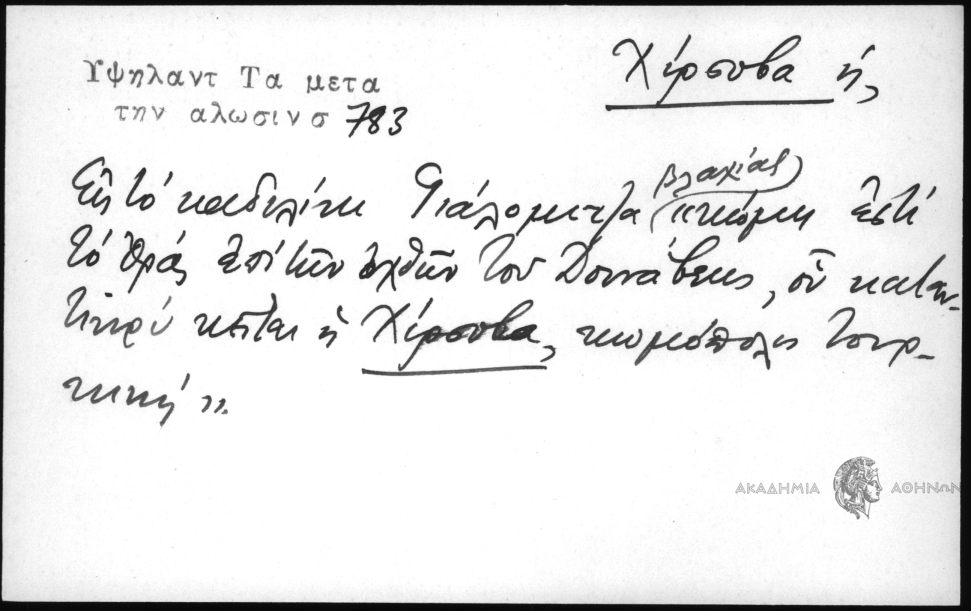 Υψηλαντ Τα μετα
την αλωσιν σ 783
Χίρσοβα ἡ,
Εἰς τὸ καδελίκι Γιάλομιτζα (Βλαχίας) "κώμη ἐστὶ
τὸ Ὀράς ἐπὶ τὴν ὄχθην τοῦ Δουνάβεως, οὗ καταν-
τικρὺ κεῖται ἡ Χίρσοβα, κωμόπολις τουρ-
κική".
ΑΚΑΔΗΜΙΑ ΑΘΗΝΩΝ